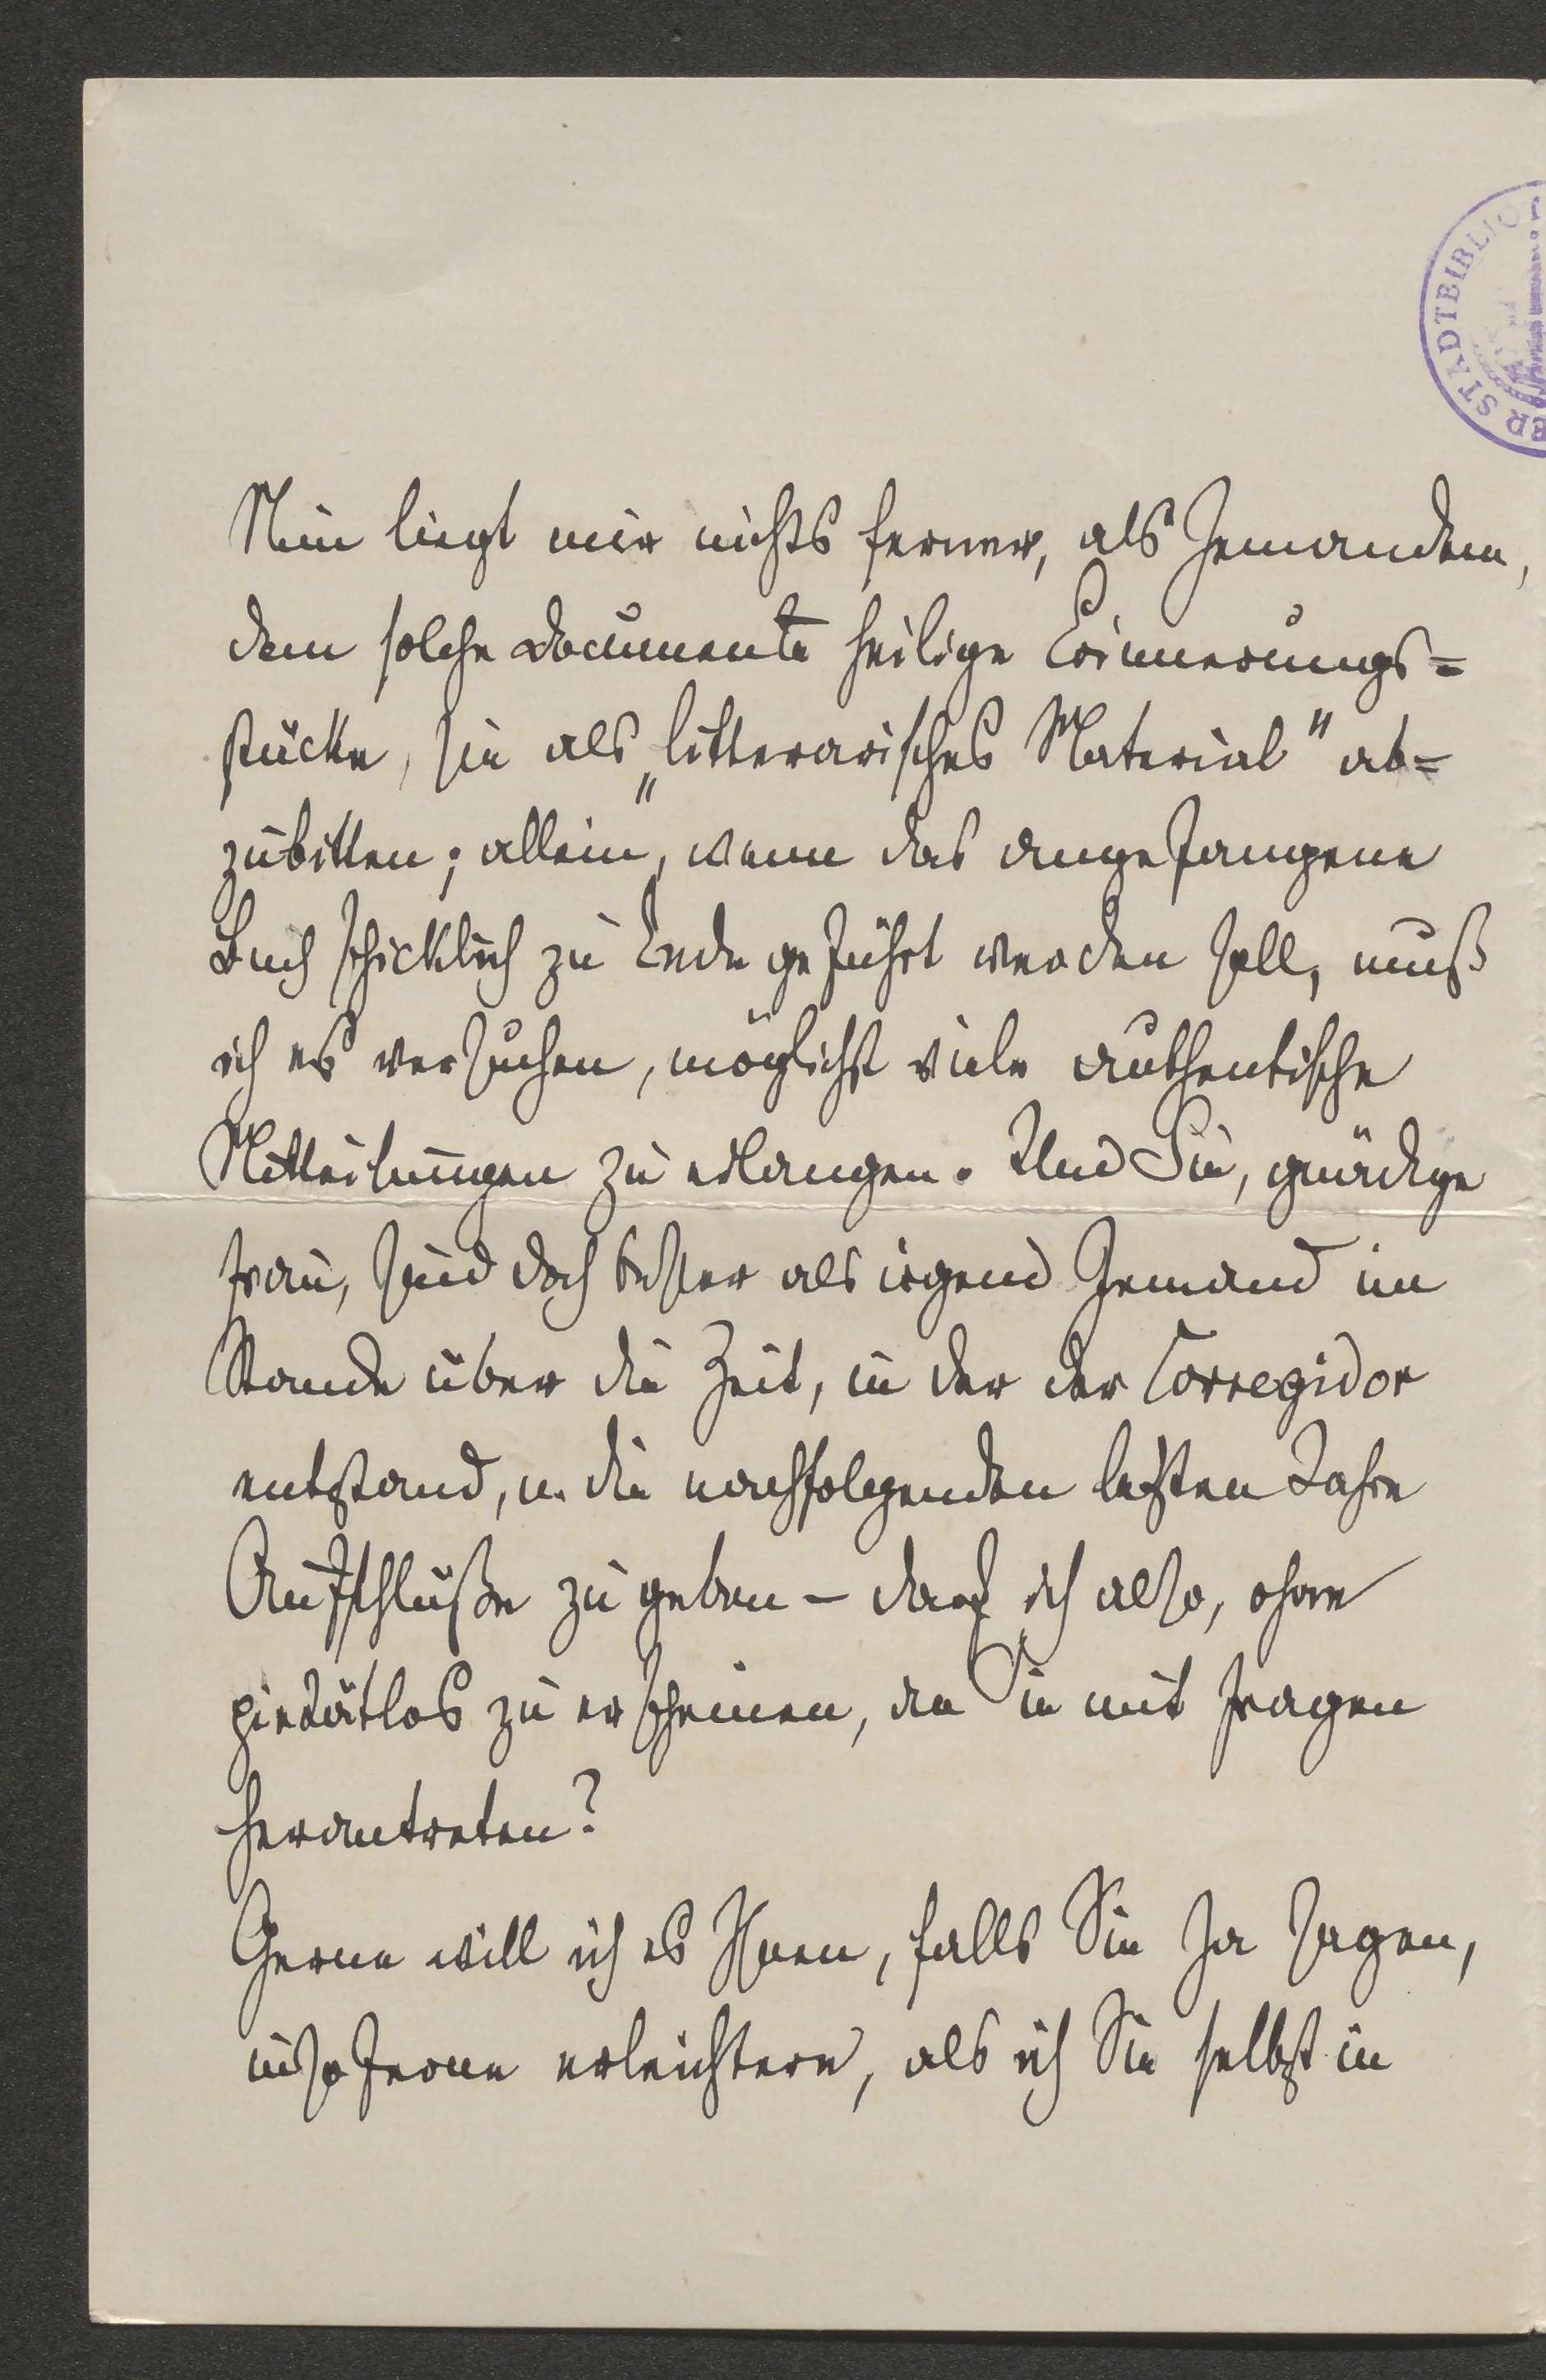 ER STADTBIBLIO
Nun liegt mir nichts ferner, als Jemandem,
dem solche Documente heilige Erinnerungs=
stücke, sie als „litterarisches Material" ab=
zubitten; allein, wenn das angefangene
Buch schicklich zu Ende geführt werden soll, muß
ich es versuchen, möglichst viele authentische
Mitteilungen zu erlangen. Und Sie, gnädige
Frau, sind doch besser als irgend Jemand im
Stande über die Zeit, in der der Corregidor
entstand, u. die nachfolgenden letzten Jahre
Aufschlüße zu geben – darf ich also, ohne
pietätlos zu erscheinen, an Sie mit Fragen
herantreten?
Gerne will ich es Ihnen, falls Sie Ja sagen,
insoferne erleichtern, als ich Sie selbst in